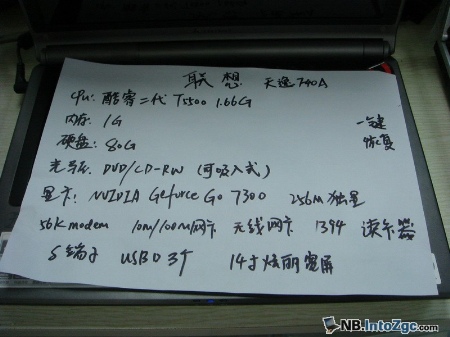 联想 天逸F40A
CPU: 酷睿二代 T5500 1.66G
内存: 1G 一键
硬盘: 80G 恢复
光驱: DVD/CD-RW (可吸入式)
显卡: NVIDIA Geforce Go 7300 256m 独显
56K modem 10m/100m网卡 无线网卡 1394 读卡器
S端子 USB口 3个 14寸炫丽宽屏
NB.IntoZgc.com